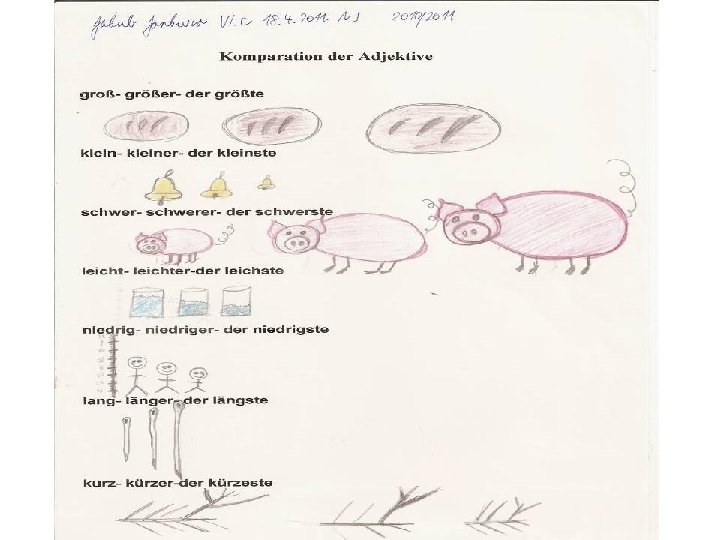 Jakub VI.C 18.4.2011 NJ 2010/2011
Komparation der Adjektive
groß- größer- der größte
klein- kleiner- der kleinste
schwer- schwerer- der schwerste
leicht- leichter-der leichste
niedrig- niedriger- der niedrigste
lang- länger- der längste
kurz- kürzer-der kürzeste